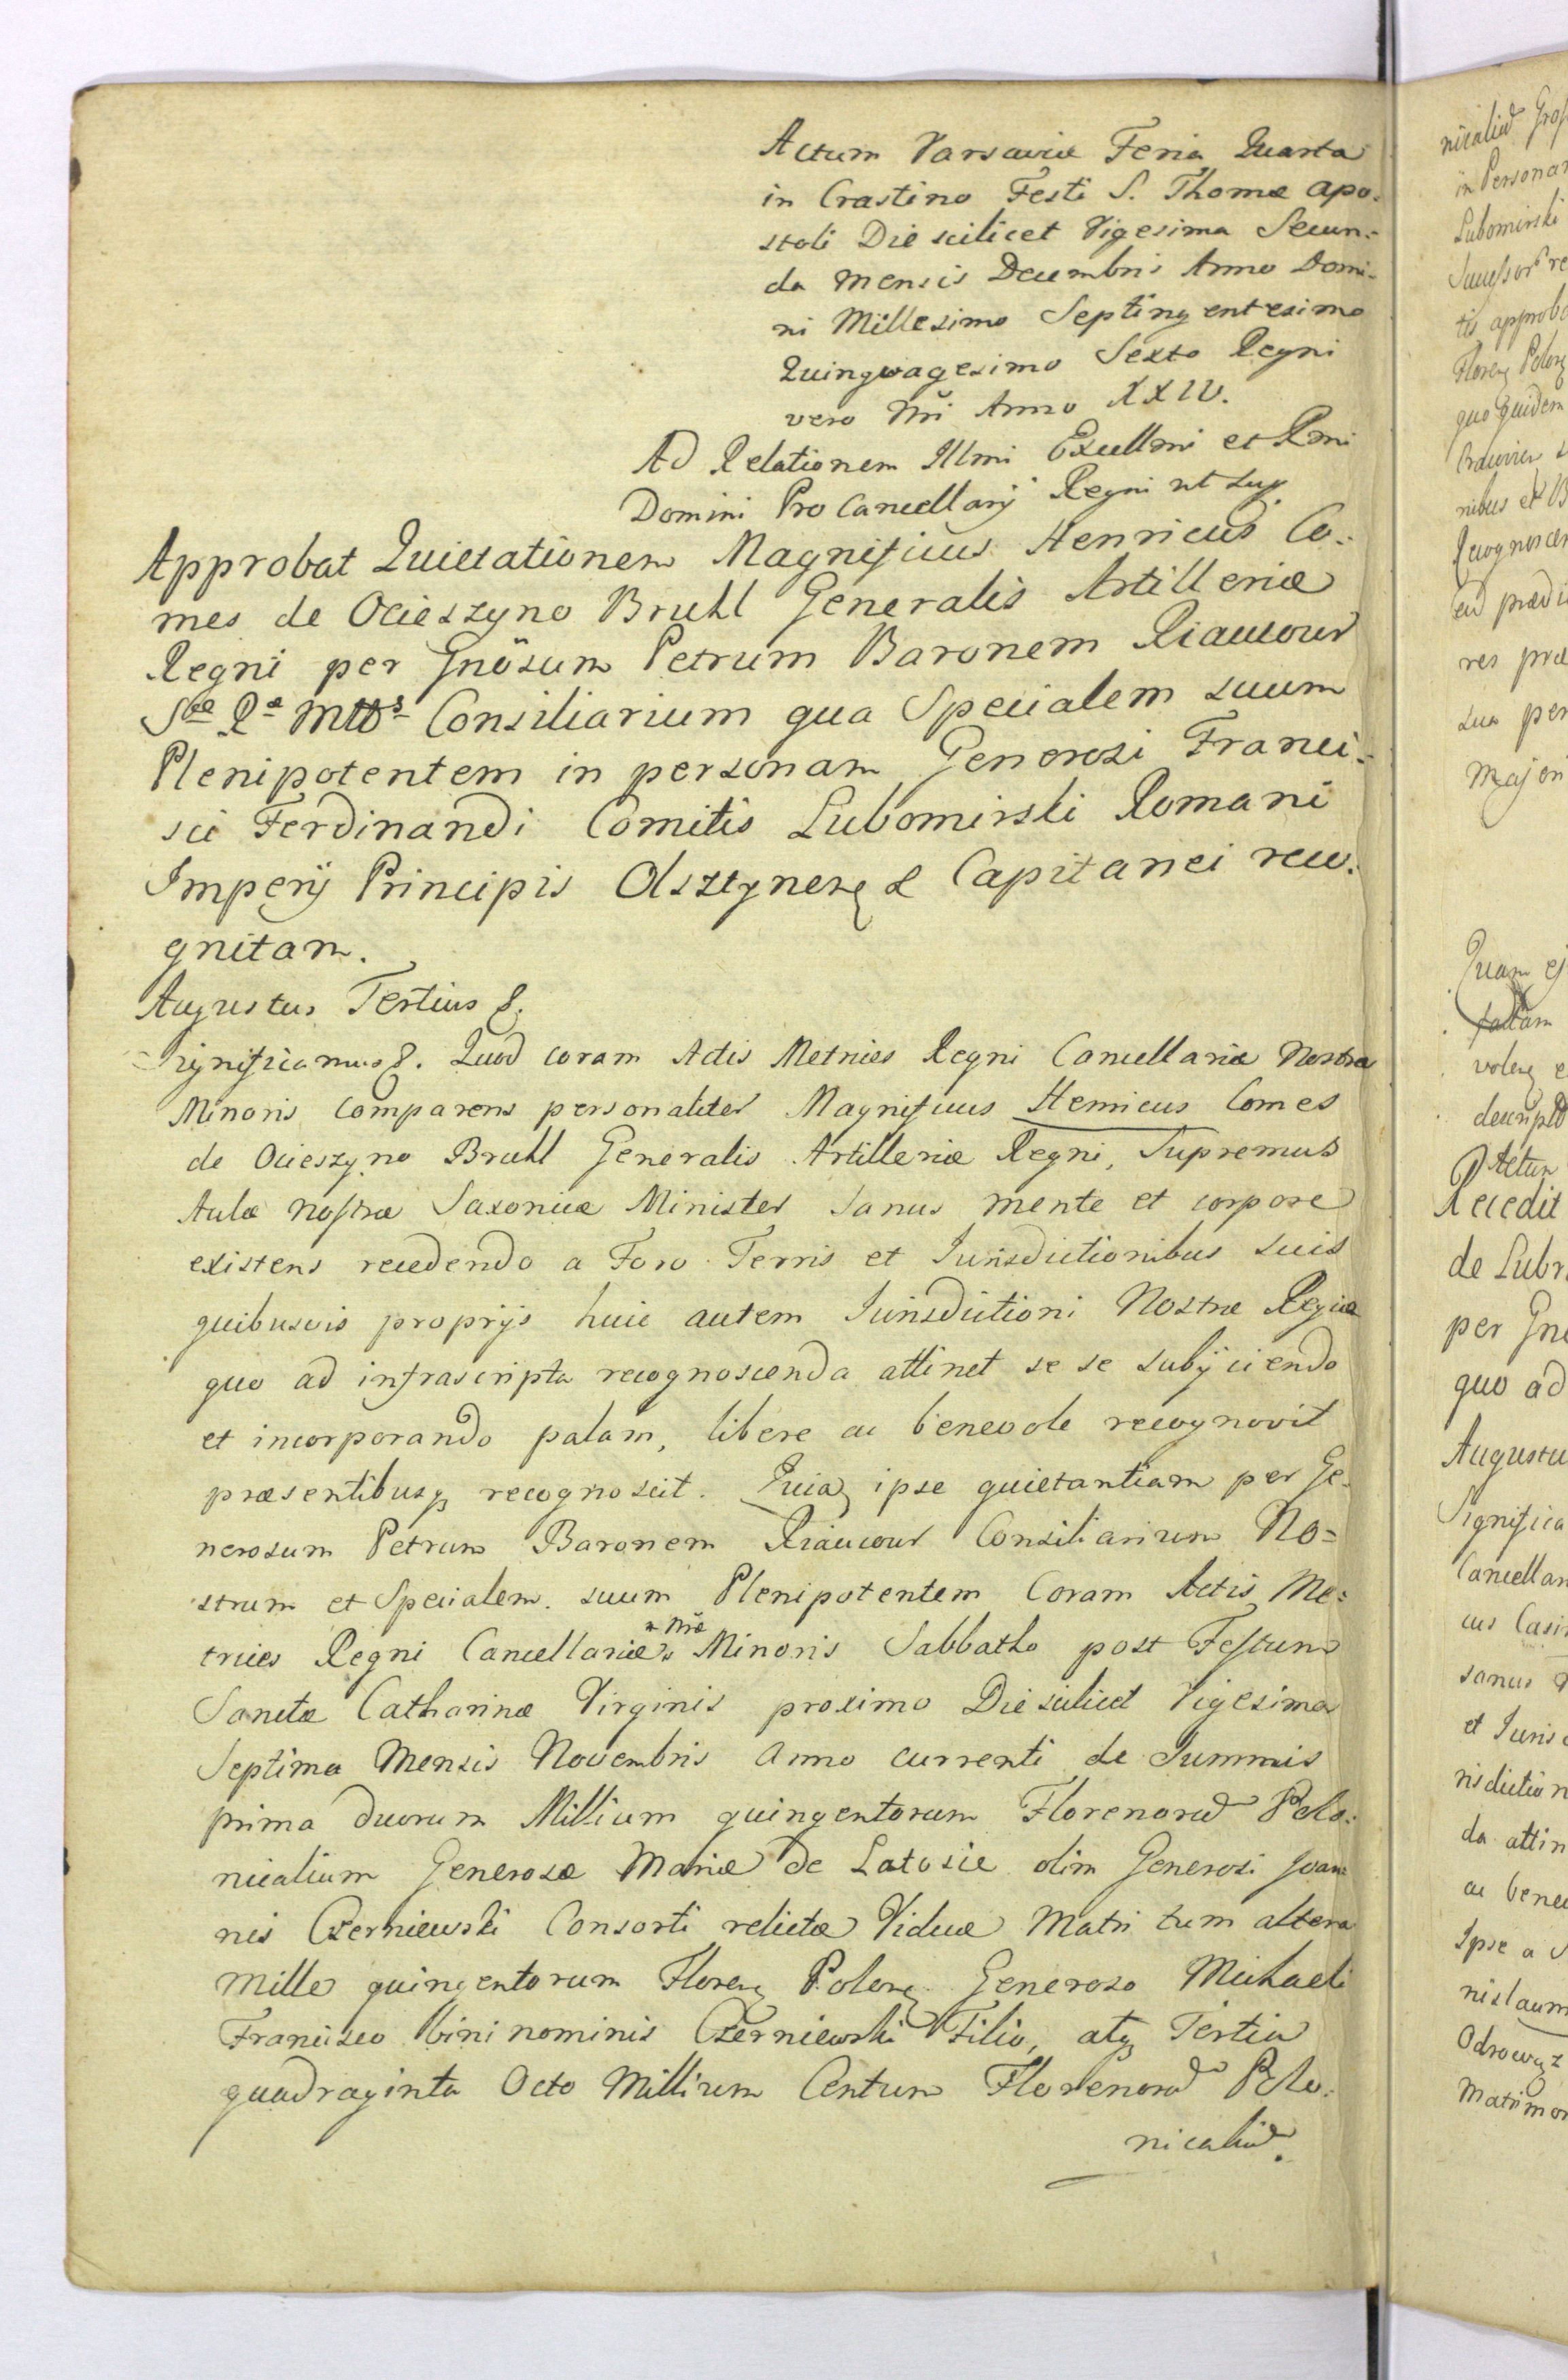 Actum Varsaviæ Feria Quarta
in Crastino Festi S. Thomæ Apo-
stoli Die scilicet Vigesima Secun-
da Mensis Decembris Anno Domi-
ni Millesimo Septingentesimo
Quinqvagesimo Sexto Regni
vero Nri Anno XXIV.
Ad Relationem Illmi Excellmi et Rmi
Domini Pro Cancellarij Regni ut sup.
Approbat Quietationem Magnificus Henricus Co-
mes de Ocieszyno Bruhl Generalis Artilleriæ
Regni per Gnosum Petrum Baronem Riaucour
Sæ Ræ Mttis Consiliarium qua Specialem suum
Plenipotentem in personam Generosi Franci-
sci Ferdinandi Comitis Lubomirski Romani
Imperij Principis Olsztynen & Capitanei reco-
gnitam.
Augustus Tertius &.
Significamus &. Quod coram Actis Metrices Regni Cancellariæ Nostræ
Minoris Comparens personaliter Magnificus Henricus Comes
de Ocieszyno Bruhl Generalis Artilleriæ Regni, Supremus
Aulæ nostræ Saxonicæ Minister Sanus mente et corpore
existens recedendo a Foro Terris et Iurisdictionibus suis
quibusvis proprijs huic autem Iurisdictioni Nostræ Regiæ
quo ad infrascripta recognoscenda attinet se se subijciendo
et incorporando palam, libere ac benevole recognovit
præsentibusq recognoscit. Quia ipse quietantiam per Ge-
nerosum Petrum Baronem Riaucour Consiliarium No=
strum et Specialem suum Plenipotentem Coram Actis Me=
trices Regni Cancellariæ Nræ Minoris Sabbatho post Festum
Sanctæ Catharinæ Virginis proximo Die scilicet Vigesima
Septima Mensis Novembris Anno currenti de Summis
prima duorum Millium quingentorum Florenorum Polo-
nicalium Generosæ Mariæ de Latosie olim Generosi Joan-
nis Czerniewski Consorti relictæ Viduæ Matri tum altera
Mille quingentorum Floren Polon Generoso Michaeli
Francisco bini nominis Czerniewski Filio, atq Tertia
quadraginta Octo Millium Centum Florenorum Polo-
nicalium.
nicalium
in Personam
Lubomirski
approba
Floren Polon
quo quidem
nibus et
Recognoscen
res præ
sua per
Majori
Quam ej
volen e
Actum
Recedit
de Lubr
per Gn
quo ad
Augustu
Significa
Cancellar
cus Casi
sanus
et Juris
risdiction
da attin
ac bene
Ipse a
nislaum
Odrowąz
Matrimon